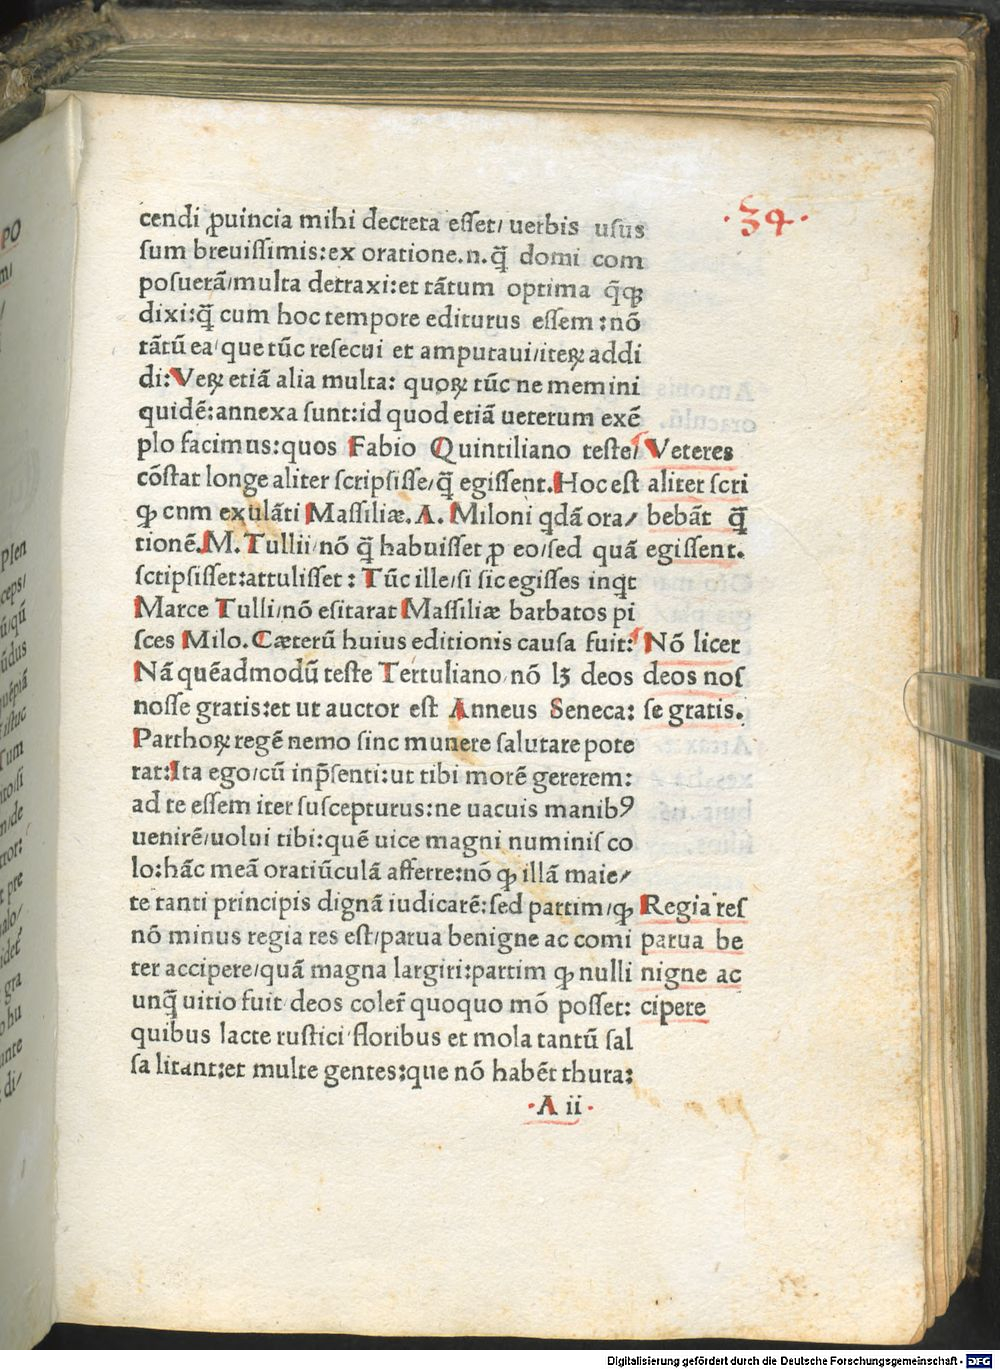 ·34·
cendi ꝓuincia mihi decreta esset/ uerbis usus
sum breuissimis:ex oratione.n.q̃ domi com
posuerã/multa detraxi:et tãtum optima q̃qꝫ
dixi:q̃ cum hoc tempore editurus essem:nõ
tãtũ ea/que tũc resecui et amputaui/iteꝝ addi
di:Veꝝ etiã alia multa: quoꝝ tũc ne memini
quidẽ:annexa sunt:id quod etiã ueterum exẽ
plo facimus:quos Fabio Quintiliano teste/
cõstat longe aliter scripsisse/q̃ egissent.Hoc est
ꝙ cnm exulãti Massiliæ.A.Miloni qdã ora/
tionẽ.M.Tullii/nõ q̃ habuisset ꝓ eo/sed quã
scripsisset:attulisset: Tũc ille/si sic egisses inqt
Marce Tulli/nõ esitarat Massiliæ barbatos pi
sces Milo.Cæterũ huius editionis causa fuit:
Nã quẽadmodũ teste Tertuliano/nõ lꝫ deos
nosse gratis:et ut auctor est Anneus Seneca:
Parthoꝝ regẽ nemo sinc munere salutare pote
rat:Ita ego/cũ inp̃senti:ut tibi morẽ gererem:
ad te essem iter suscepturus:ne uacuis manibꝰ
uenirẽ/uolui tibi:quẽ uice magni numinis co
lo:hãc meã oratiũculã afferre:nõ ꝙ illã maie/
te tanti principis dignã iudicarẽ:sed partim/ꝙ
nõ minus regia res est/parua benigne ac comi
ter accipere/quã magna largiri:partim ꝙ nulli
unq̃ uitio fuit deos coler̃ quoquo mõ posset:
quibus lacte rustici/floribus et mola tantũ sal
sa litant:et multe gentes:que nõ habẽt thura:
·A ii·
Veteres
aliter scri
bebãt q̃
egissent.
Nõ licer
deos nos
se gratis.
Regia res
parua be
nigne ac
cipere
Digitalisierung gefördert durch die Deutsche Forschungsgemeinschaft - DFG